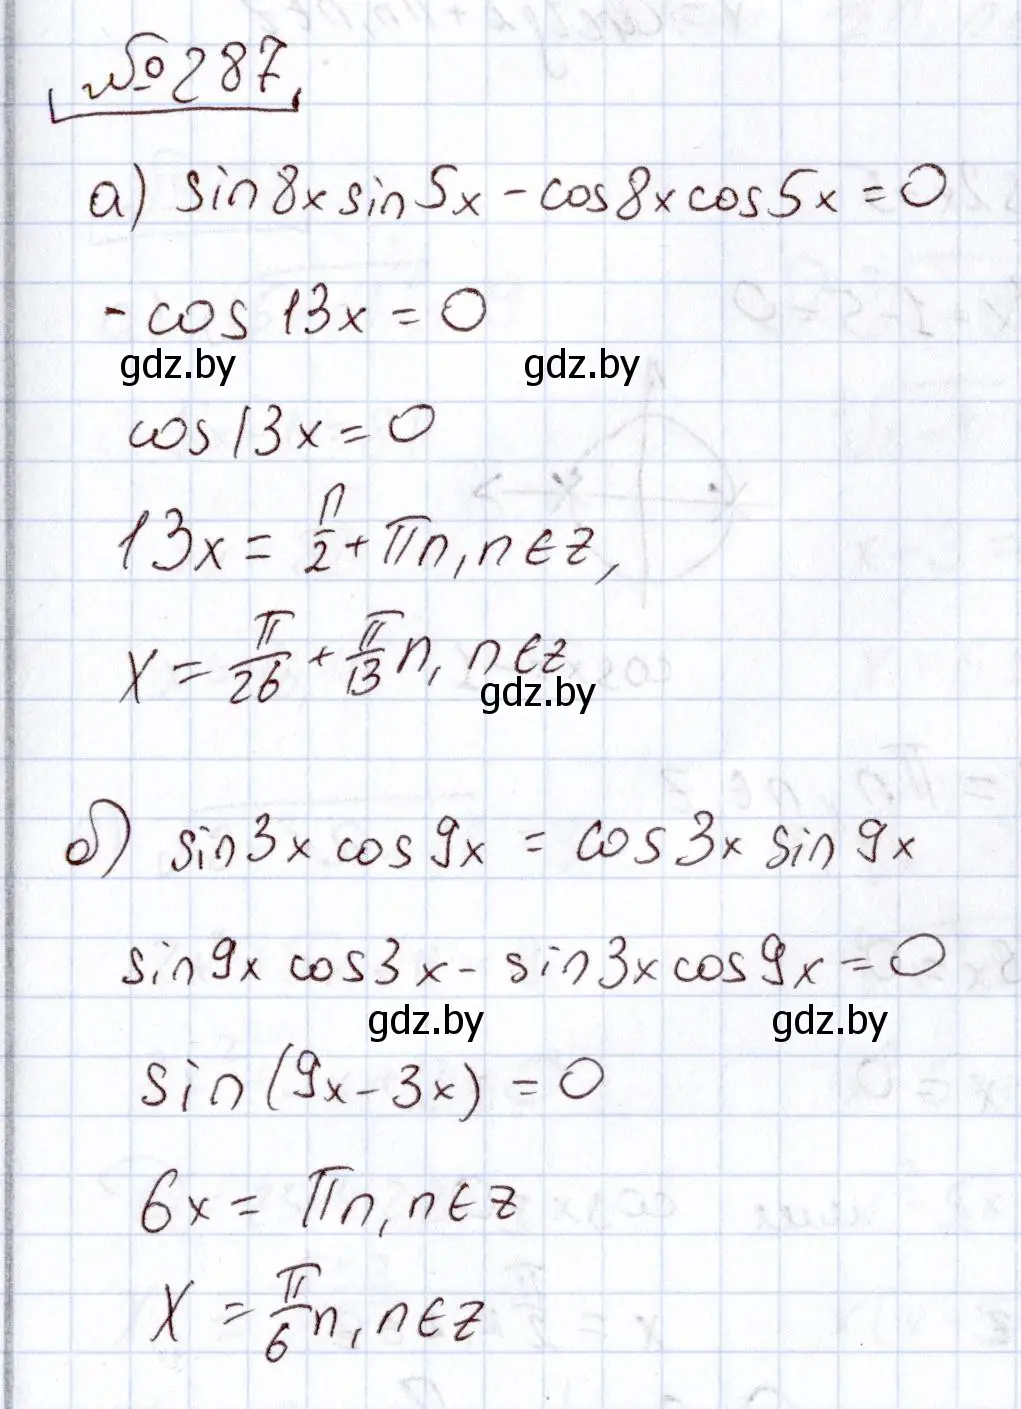 №287
а) sin8x sin5x - cos8x cos5x = 0
- cos 13x = 0
gdz.by gdz.by
cos13x = 0
13x = π/2 + πn, n∈z,
x = π/26 + π/13 n, n∈z
gdz.by
б) sin3x cos9x = cos3x sin9x
sin9x cos3x - sin3x cos9x = 0
gdz.by gdz.by
sin(9x-3x) = 0
6x = πn, n∈z
x = π/6 n, n∈z